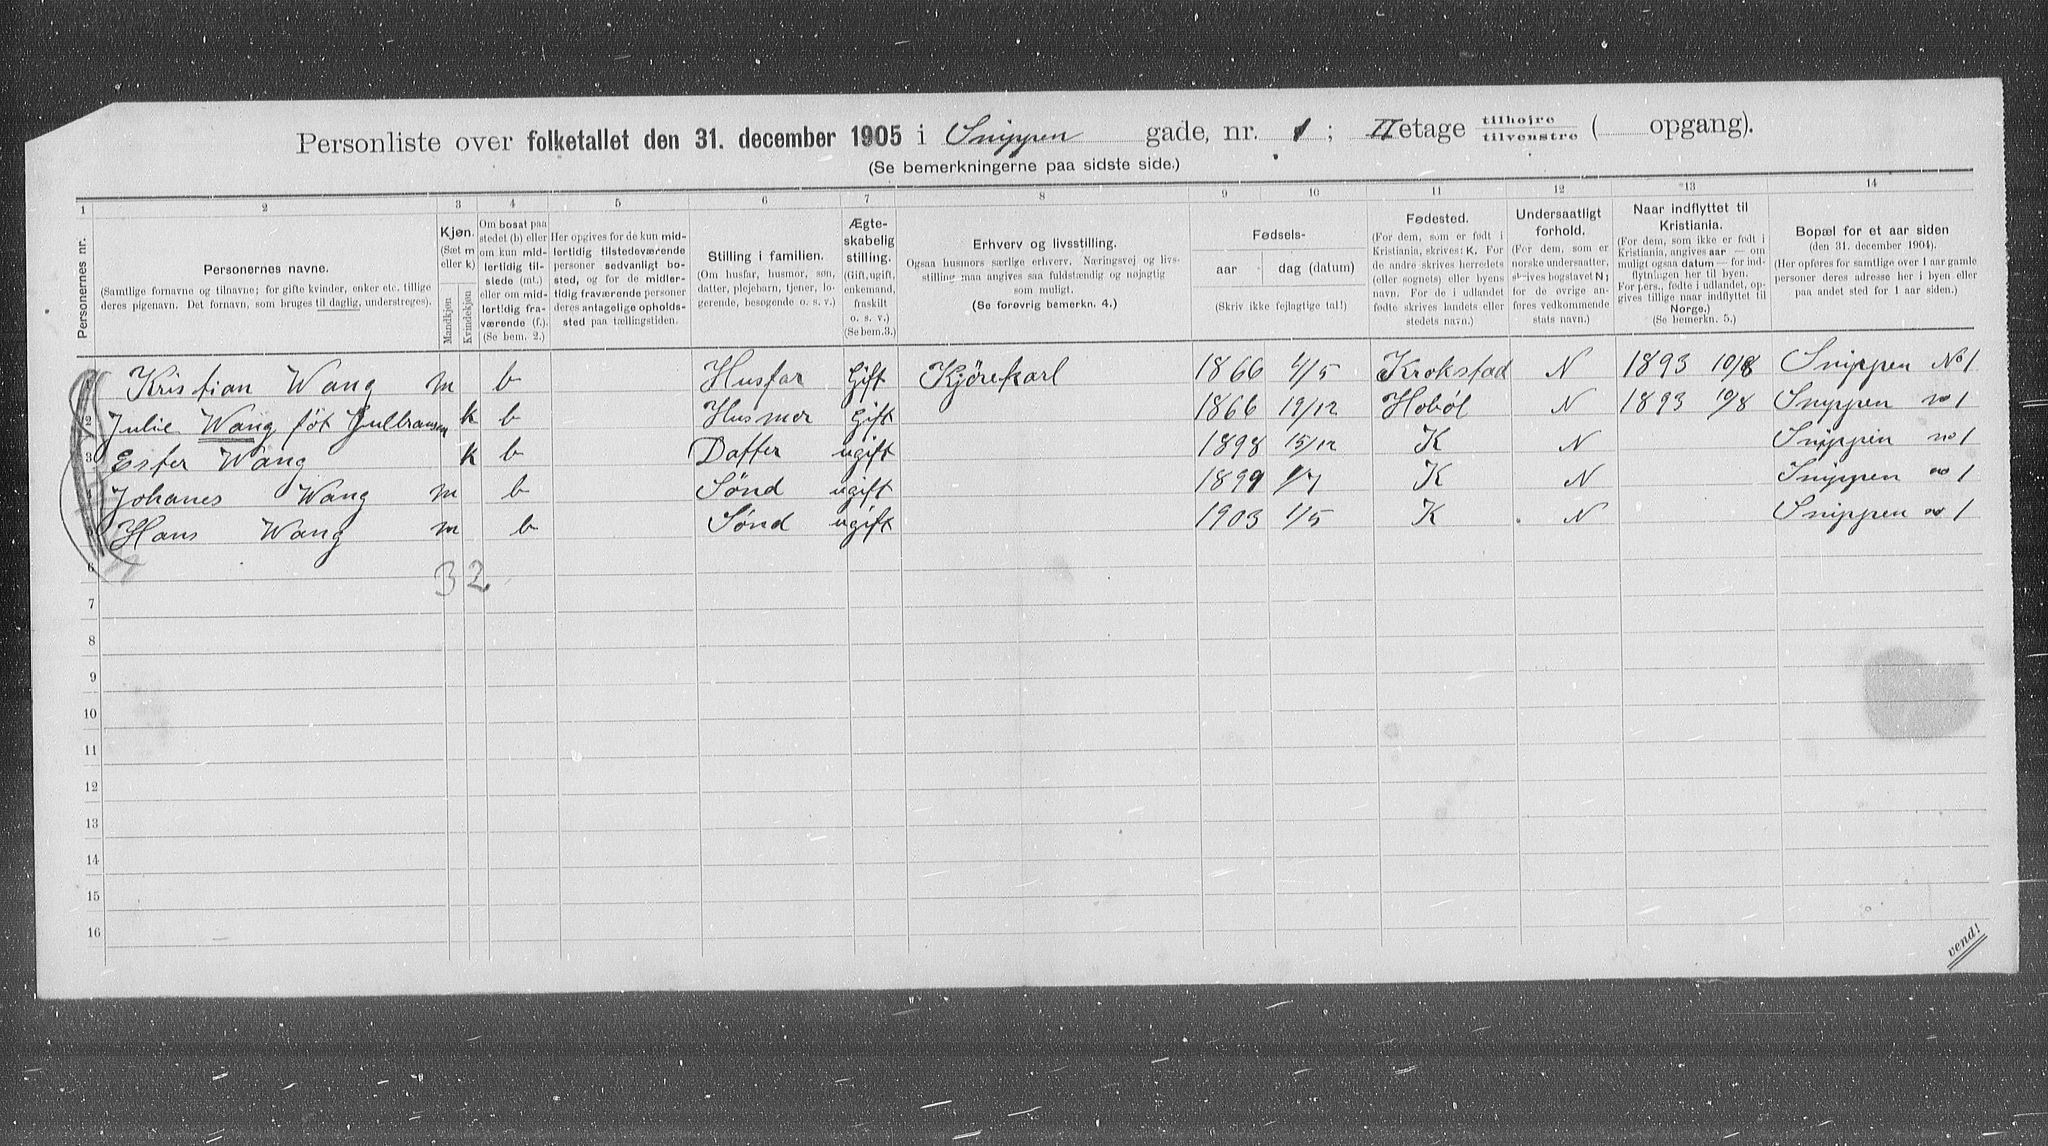 Personliste over folketallet den 31. december 1905 i Snippen gade, nr. 1; II etage tilhøjre tilvenstre ( opgang).
(Se bemerkningerne paa sidste side.)
1 2 3 4 5 6 7 8 9 10 11 12 13 14
Personernes nr.
Personernes navne.
(Samtlige fornavne og tilnavne; for gifte kvinder, enker etc. tillige deres pigenavn. Det fornavn, som bruges til daglig, understreges).
Kjøn.
(Sæt m eller k)
Mandkjøn
Kvindekjøn
Om bosat paa stedet (b) eller om kun midlertidig tilstede (mt.) eller om midlertidig fraværende (f.).
(Se bem. 2.)
Her opgives for de kun midlertidig tilstedeværende personer sedvanligt bosted, og for de midlertidig fraværende personer deres antagelige opholdssted paa tællingstiden.
Stilling i familien.
(Om husfar, husmor, søn, datter, plejebarn, tjener, logerende, besøgende o. s. v.)
Ægteskabelig stilling.
(Gift, ugift, enkemand, fraskilt o. s. v.)
(Se bem. 3.)
Erhverv og livsstilling.
Ogsaa husmors særlige erhverv. Næringsvej og livsstilling maa angives saa fuldstændig og nøjagtig som muligt.
(Se forøvrig bemerkn. 4.)
Fødsels-
aar
dag (datum)
(Skriv ikke fejlagtige tal!)
Fødested.
(For dem, som er født i Kristiania, skrives: K. For de andre skrives herredets (eller sognets) eller byens navn. For de i udlandet fødte skrives landets eller stedets navn.)
Undersaatligt forhold.
(For dem, som er norske undersaatter, skrives bogstavet N; for de øvrige angives vedkommende stats navn.)
Naar indflyttet til Kristiania.
(For dem, som ikke er født i Kristiania, angives aar — om muligt ogsaa datum — for indflytningen her til byen. For pers., fødte i udlandet, opgives tillige naar indflyttet til Norge.)
(Se bemerkn. 5.)
Bopæl for et aar siden
(den 31. december 1904).
(Her opføres for samtlige over 1 aar gamle personer deres adresse her i byen eller paa andet sted for 1 aar siden.)
1 Kristian Wang m b Husfar Gift Kjørekarl 1866 4/5 Krokstad N 1893 10/8 Snippen No 1
2 Julie Wang föt Gulbransen k b Husmor Gift 1866 19/12 Hoböl N 1893 10/8 Snippen no 1
3 Ester Wang k b Datter ugift 1898 15/12 K N Snippen no 1
4 Johanes Wang m b Sønd ugift 1899 1/7 K N Snippen no 1
5 Hans Wang m b Sønd ugift 1903 1/5 K N Snippen no 1
6
3 2
7
8
9
10
11
12
13
14
15
16
vend!